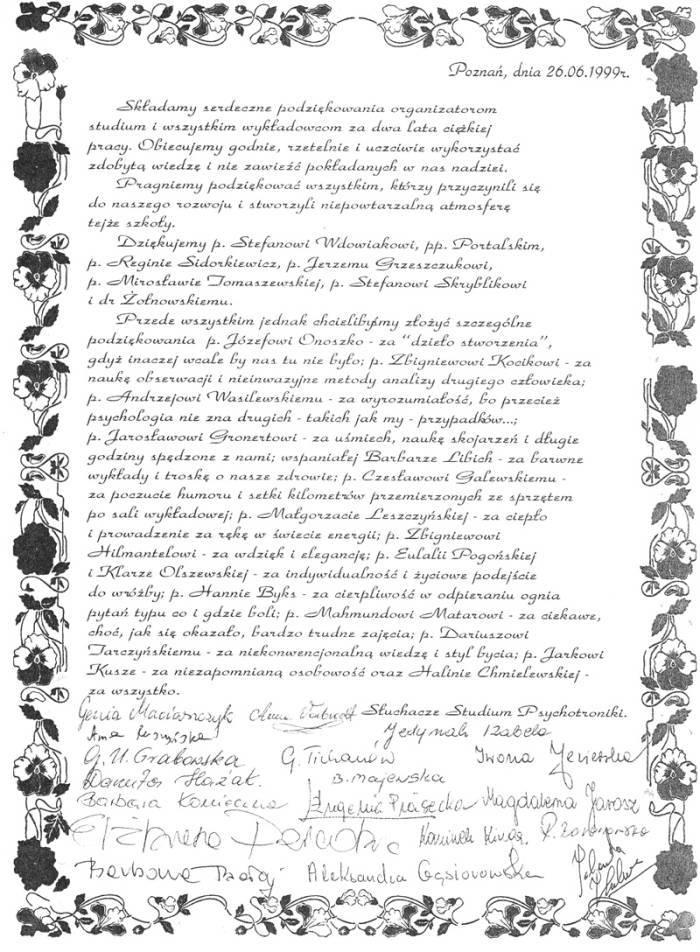 Poznań, dnia 26.06.1999r.
Składamy serdeczne podziękowania organizatorom
studium i wszystkim wykładowcom za dwa lata ciężkiej
pracy. Obiecujemy godnie, rzetelnie i uczciwie wykorzystać
zdobytą wiedzę i nie zawieść pokładanych w nas nadziei.
Pragniemy podziękować wszystkim, którzy przyczynili się
do naszego rozwoju i stworzyli niepowtarzalną atmosferę
tejże szkoły.
Dziękujemy p. Stefanowi Wdowiakowi, pp. Portalskim,
p. Reginie Sidorkiewicz, p. Jerzemu Grzeszczukowi,
p. Mirosławie Tomaszewskiej, p. Stefanowi Skryblikowi
i dr Żołnowskiemu.
Przede wszystkim jednak chcielibyśmy złożyć szczególne
podziękowania p. Józefowi Onoszko - za "dzieło stworzenia",
gdyż inaczej wcale by nas tu nie było; p. Zbigniewowi Kocikowi - za
naukę obserwacji i nieinwazyjne metody analizy drugiego człowieka;
p. Andrzejowi Wasilewskiemu - za wyrozumiałość, bo przecież
psychologia nie zna drugich - takich jak my - przypadków...;
p. Jarosławowi Gronertowi - za uśmiech, naukę skojarzeń i długie
godziny spędzone z nami; wspaniałej Barbarze Libich - za barwne
wykłady i troskę o nasze zdrowie; p. Czesławowi Galewskiemu -
za poczucie humoru i setki kilometrów przemierzonych ze sprzętem
po sali wykładowej; p. Małgorzacie Leszczyńskiej - za ciepło
i prowadzenie za rękę w świecie energii; p. Zbigniewowi
Hilmantelowi - za wdzięk i elegancję; p. Eulalii Pogońskiej
i Klarze Olszewskiej - za indywidualność i życiowe podejście
do wróżby; p. Hannie Byks - za cierpliwość w odpieraniu ognia
pytań typu co i gdzie boli; p. Mahmundowi Matarowi - za ciekawe,
choć, jak się okazało, bardzo trudne zajęcia; p. Dariuszowi
Tarczyńskiemu - za niekonwencjonalną wiedzę i styl bycia; p. Jarkowi
Kusze - za niezapomnianą osobowość oraz Halinie Chmielewskiej -
za wszystko.
Słuchacze Studium Psychotroniki.
Genia Maciaszczyk Anna
Anna Jedynak Izabela
G. U. Grabowska G. Tichanów Iwona
Danuta B. Majewska
Barbara Konieczna Eugenia Piasecka Magdalena Jarosz
Elżbieta
Barbara Aleksandra Gąsiorowska Jolanta